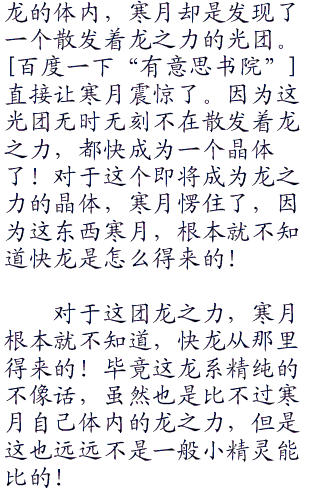 龙的体内，寒月却是发现了
一个散发着龙之力的光团。
[百度一下“有意思书院”]
直接让寒月震惊了。因为这
光团无时无刻不在散发着龙
之力，都快成为一个晶体
了！对于这个即将成为龙之
力的晶体，寒月愣住了，因
为这东西寒月，根本就不知
道快龙是怎么得来的！
对于这团龙之力，寒月
根本就不知道，快龙从那里
得来的！毕竟这龙系精纯的
不像话，虽然也是比不过寒
月自己体内的龙之力，但是
这也远远不是一般小精灵能
比的！